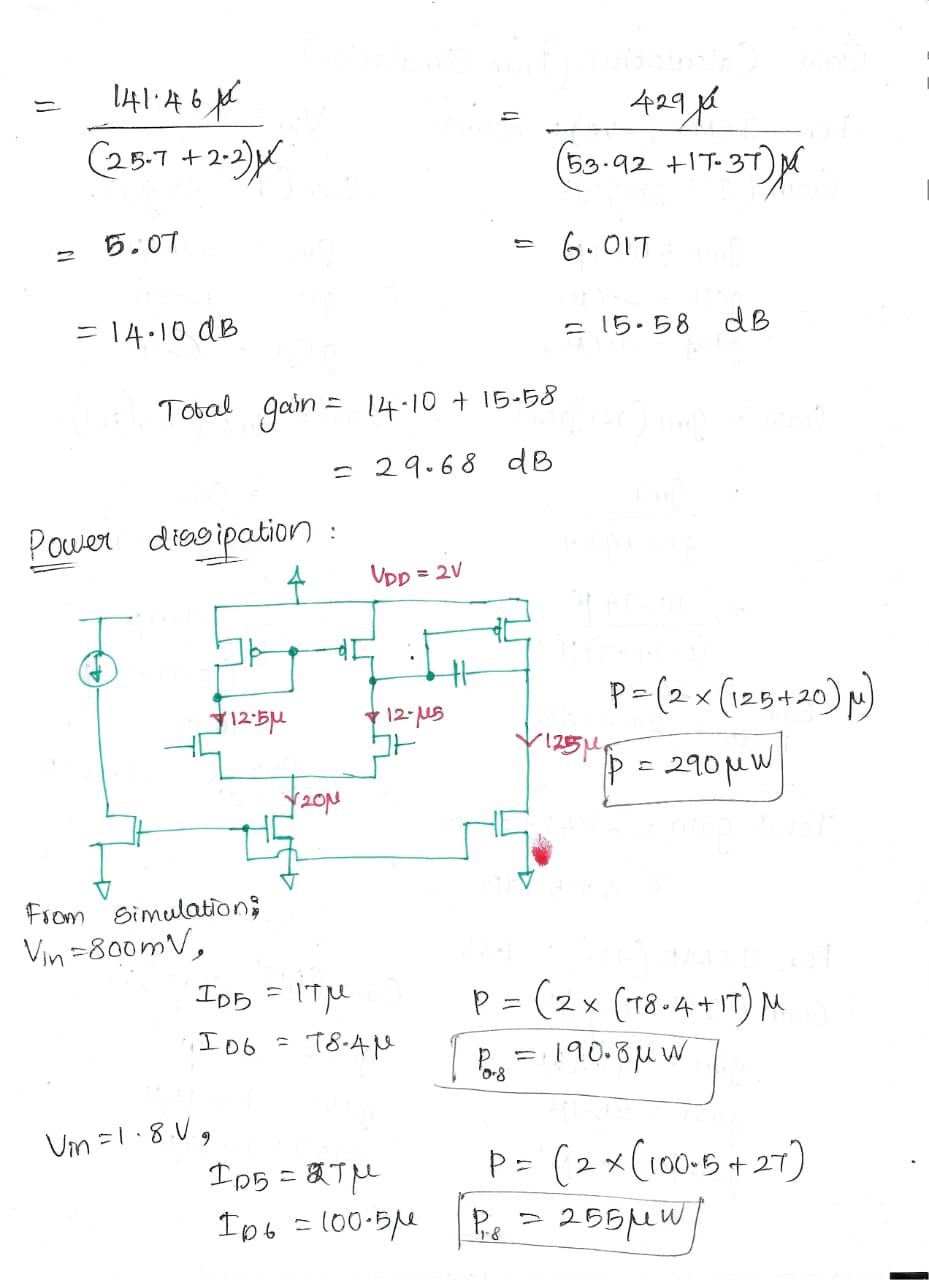 = 141.46 µ / (25.7 + 2.2) µ
= 5.07
= 14.10 dB
= 429 µ / (53.92 + 17.37) µ
= 6.017
= 15.58 dB
Total gain = 14.10 + 15.58
= 29.68 dB
Power dissipation :
VDD = 2V
12.5µ
12.µ5
125µ
20µ
P = (2 × (125+20) µ)
P = 290 µW
From simulation;
Vin = 800mV,
ID5 = 17µ
ID6 = 78.4µ
P = (2 × (78.4+17) µ
P0.8 = 190.8µW
Vin = 1.8V,
ID5 = 27µ
ID6 = 100.5µ
P = (2 × (100.5 + 27)
P1.8 = 255µW